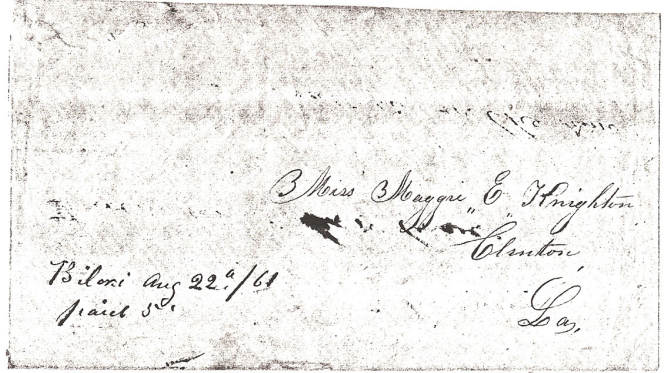 Miss Maggie E Knighton
Clinton,
La,
Biloxi Aug 22d/61
paid 5c